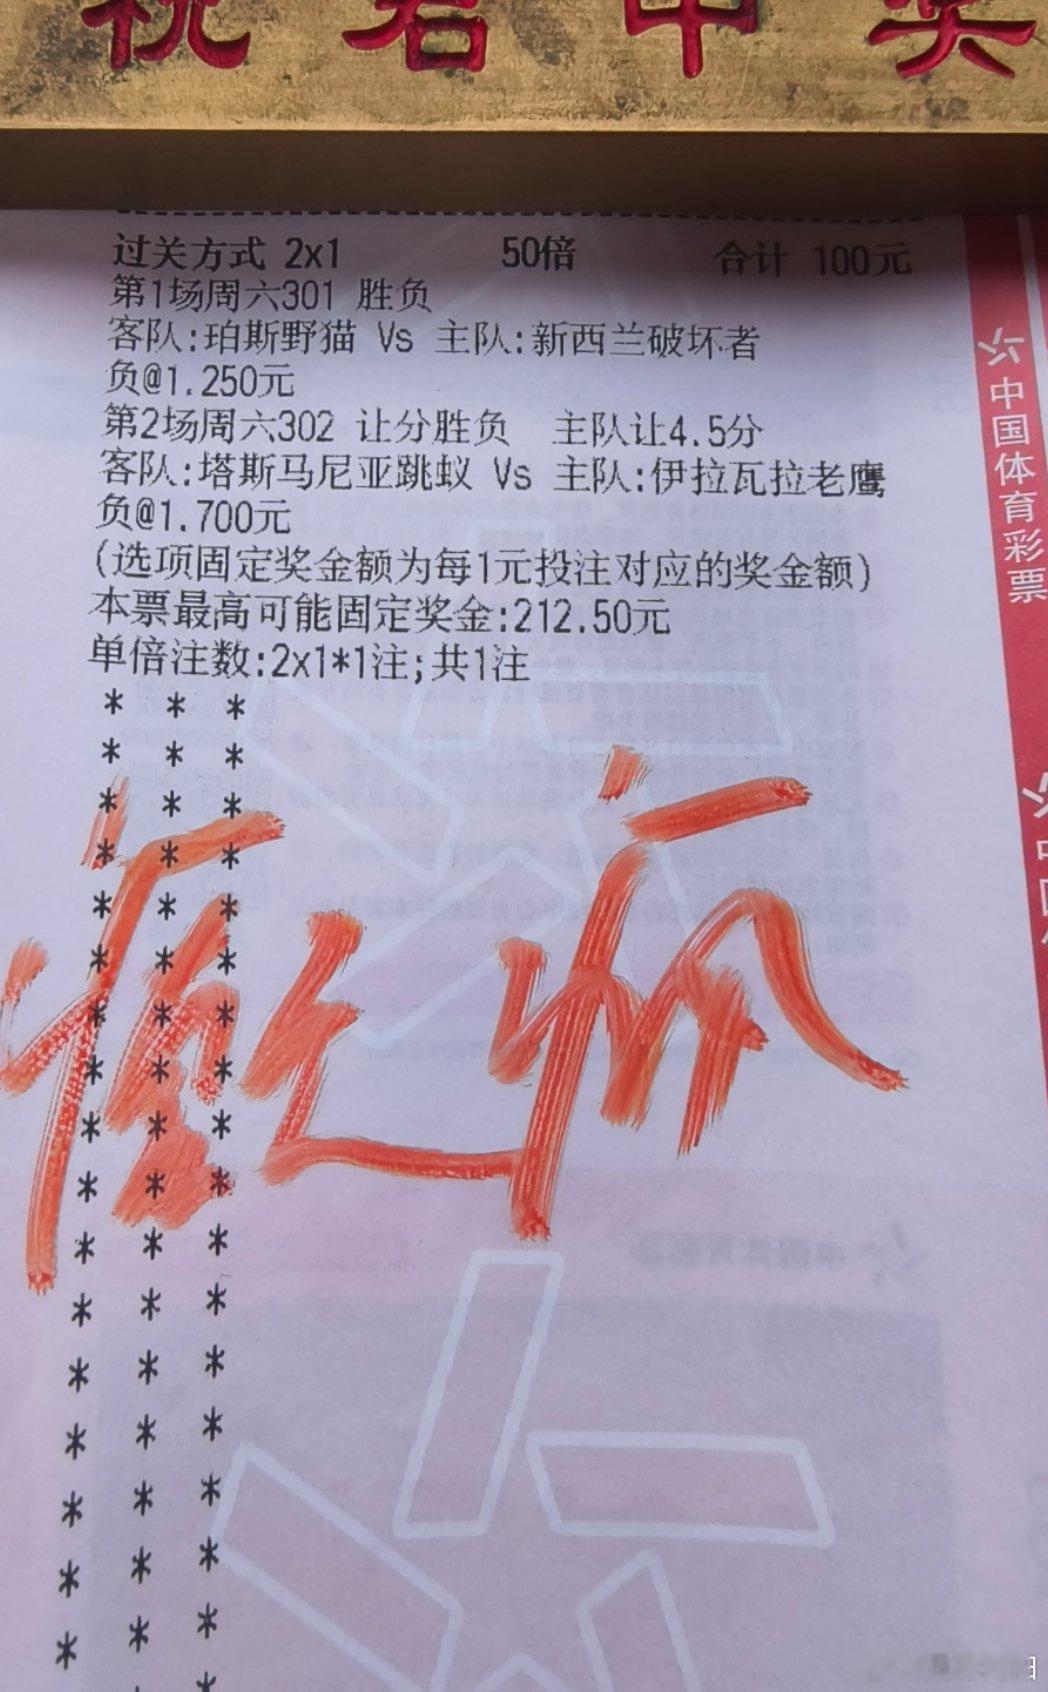 祝君中奖
过关方式 2x1 50倍 合计 100元
第1场周六301 胜负
客队:珀斯野猫 Vs 主队:新西兰破坏者
负@1.250元
第2场周六302 让分胜负 主队让4.5分
客队:塔斯马尼亚跳蚁 Vs 主队:伊拉瓦拉老鹰
负@1.700元
(选项固定奖金额为每1元投注对应的奖金额)
本票最高可能固定奖金:212.50元
单倍注数:2x1*1注;共1注
中国体育彩票